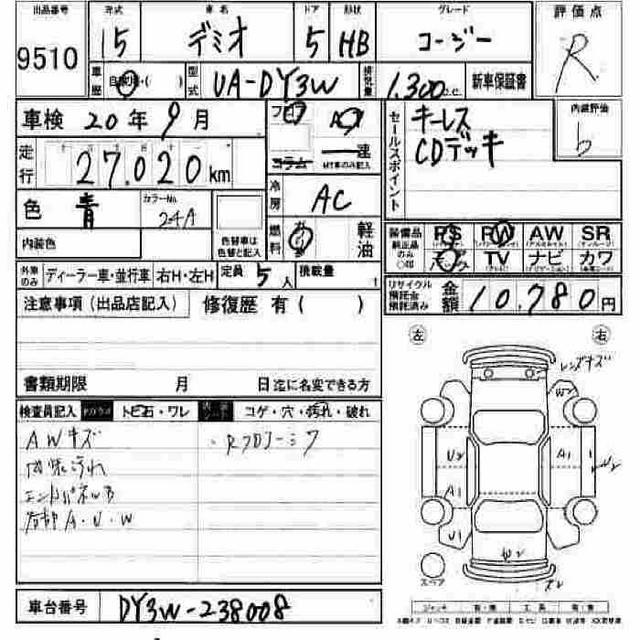 出品番号 年式 車名 ドア 形状 グレード 評価点
9510 15 デミオ 5 HB コージー R
車歴 自家用・( ) 型式 UA-DY3W 排気量 1.300 c.c. 新車保証書
車検 20年9月
走行 27.020 km
色 青 カラーNo. 24A
内装色 色替車は色替と記入
コラム 速
冷房 AC
燃料 軽油
セールスポイント キーレス
CDデッキ
内装評価 b
装備品 純正品のみ○印 PS PW AW SR
TV ナビ カワ
外車のみ ディーラー車・並行車 右H・左H 定員 5人 積載量 t
リサイクル預託金預託済み 金額 10,780円
注意事項(出品店記入) 修復歴 有( )
書類期限 月 日迄に名変できる方
左 右
検査員記入 トビ石・ワレ コゲ・穴・汚れ・破れ
AWキズ
内装汚れ
エンドパネル
各部A・U・W
レンズキズ
W2
U2 A1
A1
U1
W2
スペア
車台番号 DY3W-238008